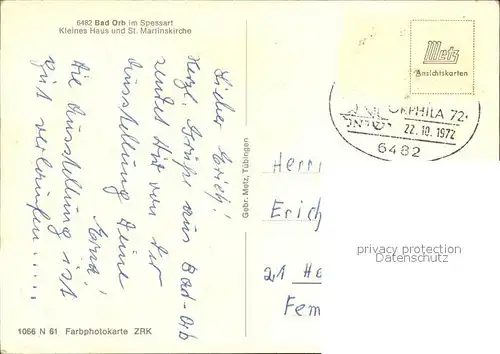 6482 Bad Orb im Spessart
Kleines Haus und St. Martinskirche
Metz
Ansichtskarten
ORPHILA 72
ישראל
22.10.1972
6482
Lieber Erich!
Herzl. Grüße aus Bad-Orb
sendet Dir von der
Ausstellung Deine
Erna!
Die Ausstellung ist
gut verlaufen.....
Gebr. Metz, Tübingen
Herrn
Erich
21 Ha
Fem
privacy protection
Datenschutz
1066 N 61 Farbphotokarte ZRK